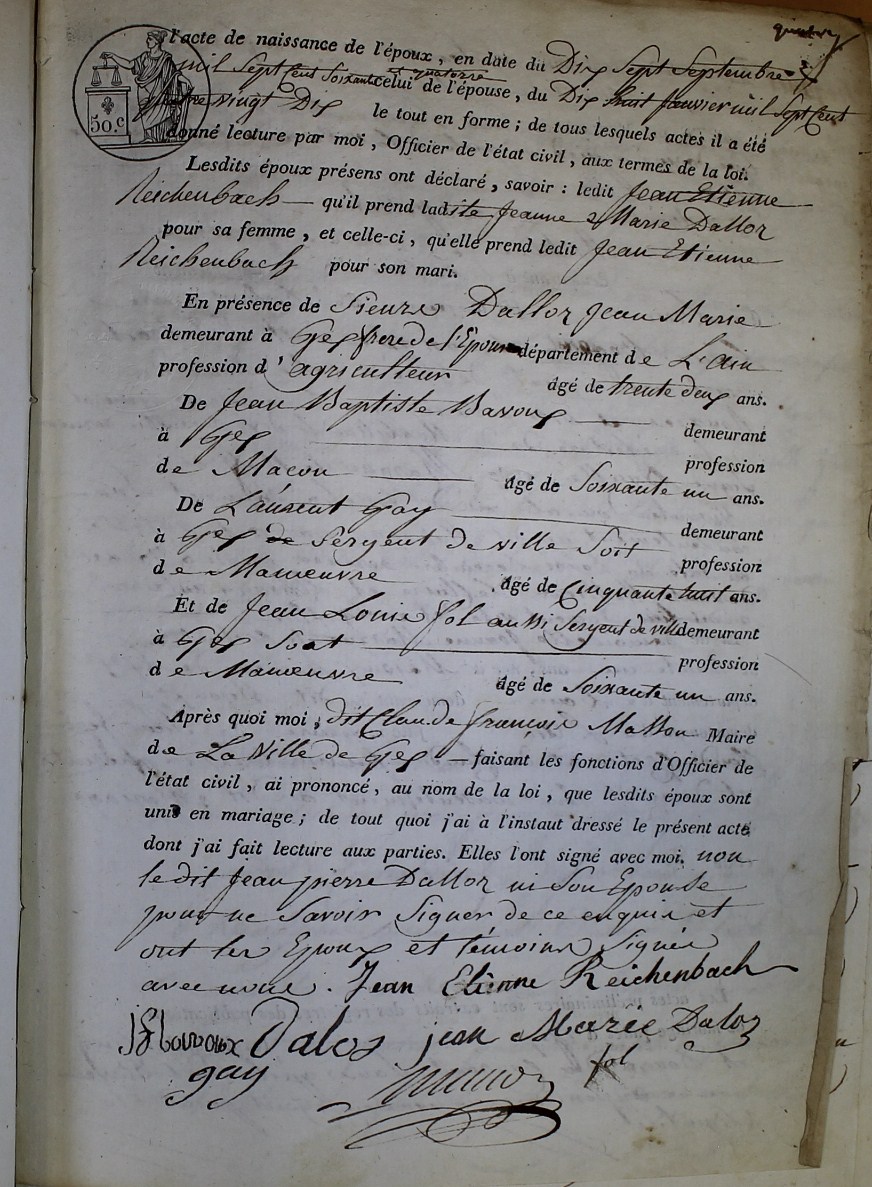 l'acte de naissance de l'époux, en date du Dix Sept Septembre
mil Sept Cent Soixante et quatorze celui de l'épouse, du Dix huit Janvier mil Sept Cent
quatre vingt Dix le tout en forme; de tous lesquels actes il a été
donné lecture par moi, Officier de l'état civil, aux termes de la loi.
50.c
Lesdits époux présens ont déclaré, savoir: ledit Jean Etienne
Reichenbach — qu'il prend ladite Jeanne Marie Dalloz
pour sa femme, et celle-ci, qu'elle prend ledit Jean Etienne
Reichenbach pour son mari.
En présence de Sieurs Dalloz Jean Marie
demeurant à Gex frere de l'Epouse département de L'ain
profession d'agriculteur âgé de trente deux ans.
De Jean Baptiste Bavoux — demeurant
à Gex — profession
de Maçon — âgé de Soixante un ans.
De Laurent Gay — demeurant
à Gex de Sergent de ville Soit profession
de Maneuvre âgé de Cinquante huit ans.
Et de Jean Louis fol aussi Sergent de ville demeurant
à Gex Soit — profession
de Maneuvre âgé de Soixante un ans.
Après quoi moi, dit Claude françois Masson Maire
de La Ville de Gex — faisant les fonctions d'Officier de
l'état civil, ai prononcé, au nom de la loi, que lesdits époux sont
unis en mariage; de tout quoi j'ai à l'instant dressé le présent acte
dont j'ai fait lecture aux parties. Elles l'ont signé avec moi. non
le dit Jean pierre Dalloz ni Son Epouse
pour ne Savoir Signer de ce enquis et
ont les Epoux et témoins Signés
avec nous. Jean Etienne Reichenbach
Bavoux Dalos jean Marie Daloz
gay fol